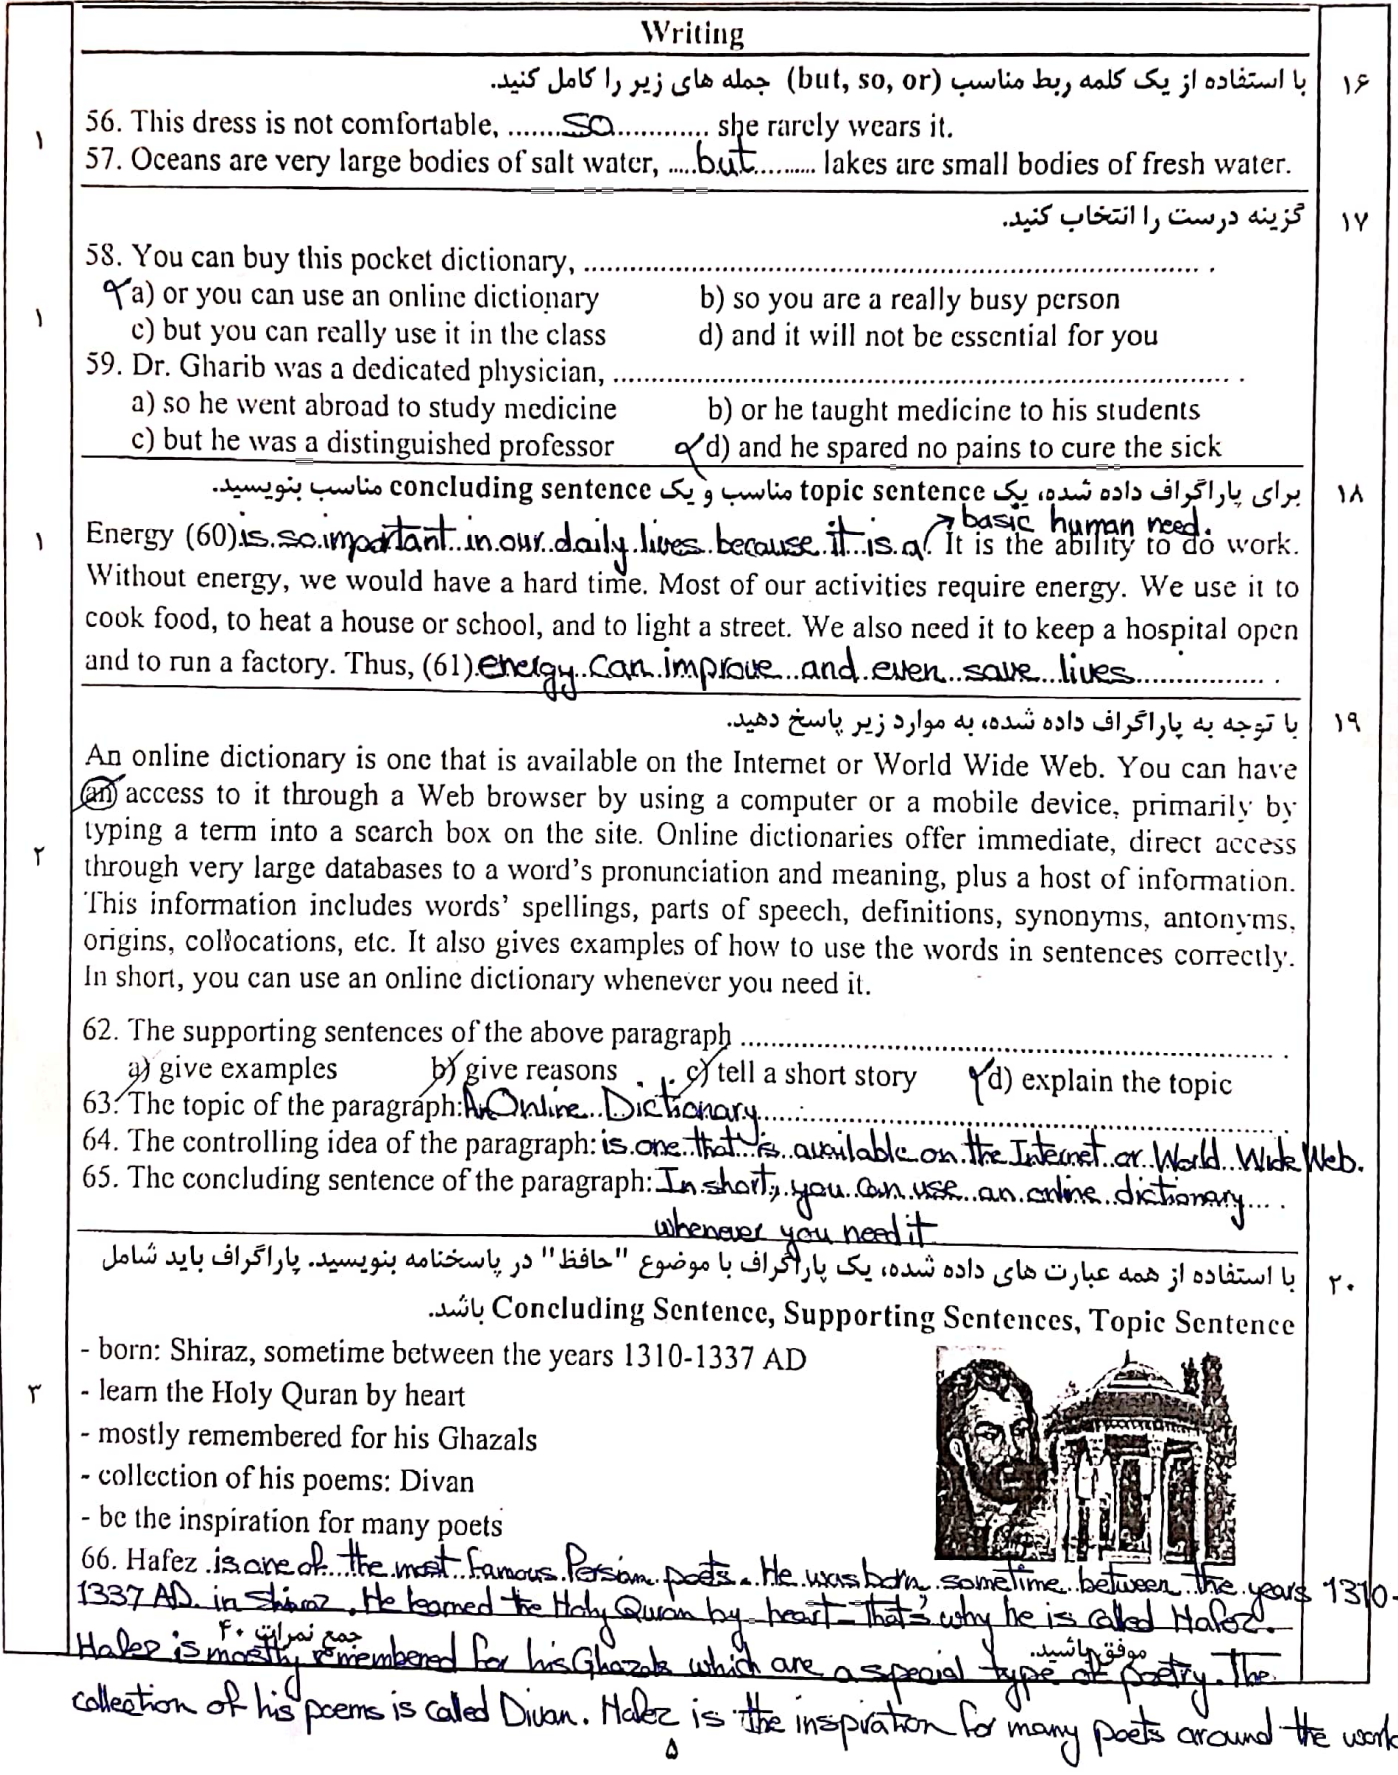 Writing
۱۶ با استفاده از یک کلمه ربط مناسب (but, so, or) جمله های زیر را کامل کنید.
56. This dress is not comfortable, ........so............. she rarely wears it.
۱
57. Oceans are very large bodies of salt water, .....but.......... lakes are small bodies of fresh water.
۱۷ گزینه درست را انتخاب کنید.
58. You can buy this pocket dictionary, .................................................. .
a) or you can use an online dictionary b) so you are a really busy person
۱
c) but you can really use it in the class d) and it will not be essential for you
59. Dr. Gharib was a dedicated physician, .................................................. .
a) so he went abroad to study medicine b) or he taught medicine to his students
c) but he was a distinguished professor d) and he spared no pains to cure the sick
۱۸ برای پاراگراف داده شده، یک topic sentence مناسب و یک concluding sentence مناسب بنویسید.
basic human need.
۱ Energy (60) is so important in our daily lives because it is a. It is the ability to do work.
Without energy, we would have a hard time. Most of our activities require energy. We use it to
cook food, to heat a house or school, and to light a street. We also need it to keep a hospital open
and to run a factory. Thus, (61) energy can improve and even save lives.................. .
۱۹ با توجه به پاراگراف داده شده، به موارد زیر پاسخ دهید.
An online dictionary is one that is available on the Internet or World Wide Web. You can have
an access to it through a Web browser by using a computer or a mobile device, primarily by
typing a term into a search box on the site. Online dictionaries offer immediate, direct access
۲
through very large databases to a word's pronunciation and meaning, plus a host of information.
This information includes words' spellings, parts of speech, definitions, synonyms, antonyms,
origins, collocations, etc. It also gives examples of how to use the words in sentences correctly.
In short, you can use an online dictionary whenever you need it.
62. The supporting sentences of the above paragraph .................................................. .
a) give examples b) give reasons c) tell a short story d) explain the topic
63. The topic of the paragraph: An Online Dictionary..................................................
64. The controlling idea of the paragraph: is one that is available on the Internet or World Wide Web.
65. The concluding sentence of the paragraph: In short, you can use an online dictionary.... .
whenever you need it
۲۰ با استفاده از همه عبارت های داده شده، یک پاراگراف با موضوع "حافظ" در پاسخنامه بنویسید. پاراگراف باید شامل
Concluding Sentence, Supporting Sentences, Topic Sentence باشد.
- born: Shiraz, sometime between the years 1310-1337 AD
۳ - learn the Holy Quran by heart
- mostly remembered for his Ghazals
- collection of his poems: Divan
- be the inspiration for many poets
66. Hafez is one of the most famous Persian poets. He was born sometime between the years 1310-
1337 AD. in Shiraz. He learned the Holy Quran by heart that's why he is called Hafez.
جمع نمرات ۴۰ موفق باشید.
Hafez is mostly remembered for his Ghazals which are a special type of poetry. The
collection of his poems is called Divan. Hafez is the inspiration for many poets around the
۵